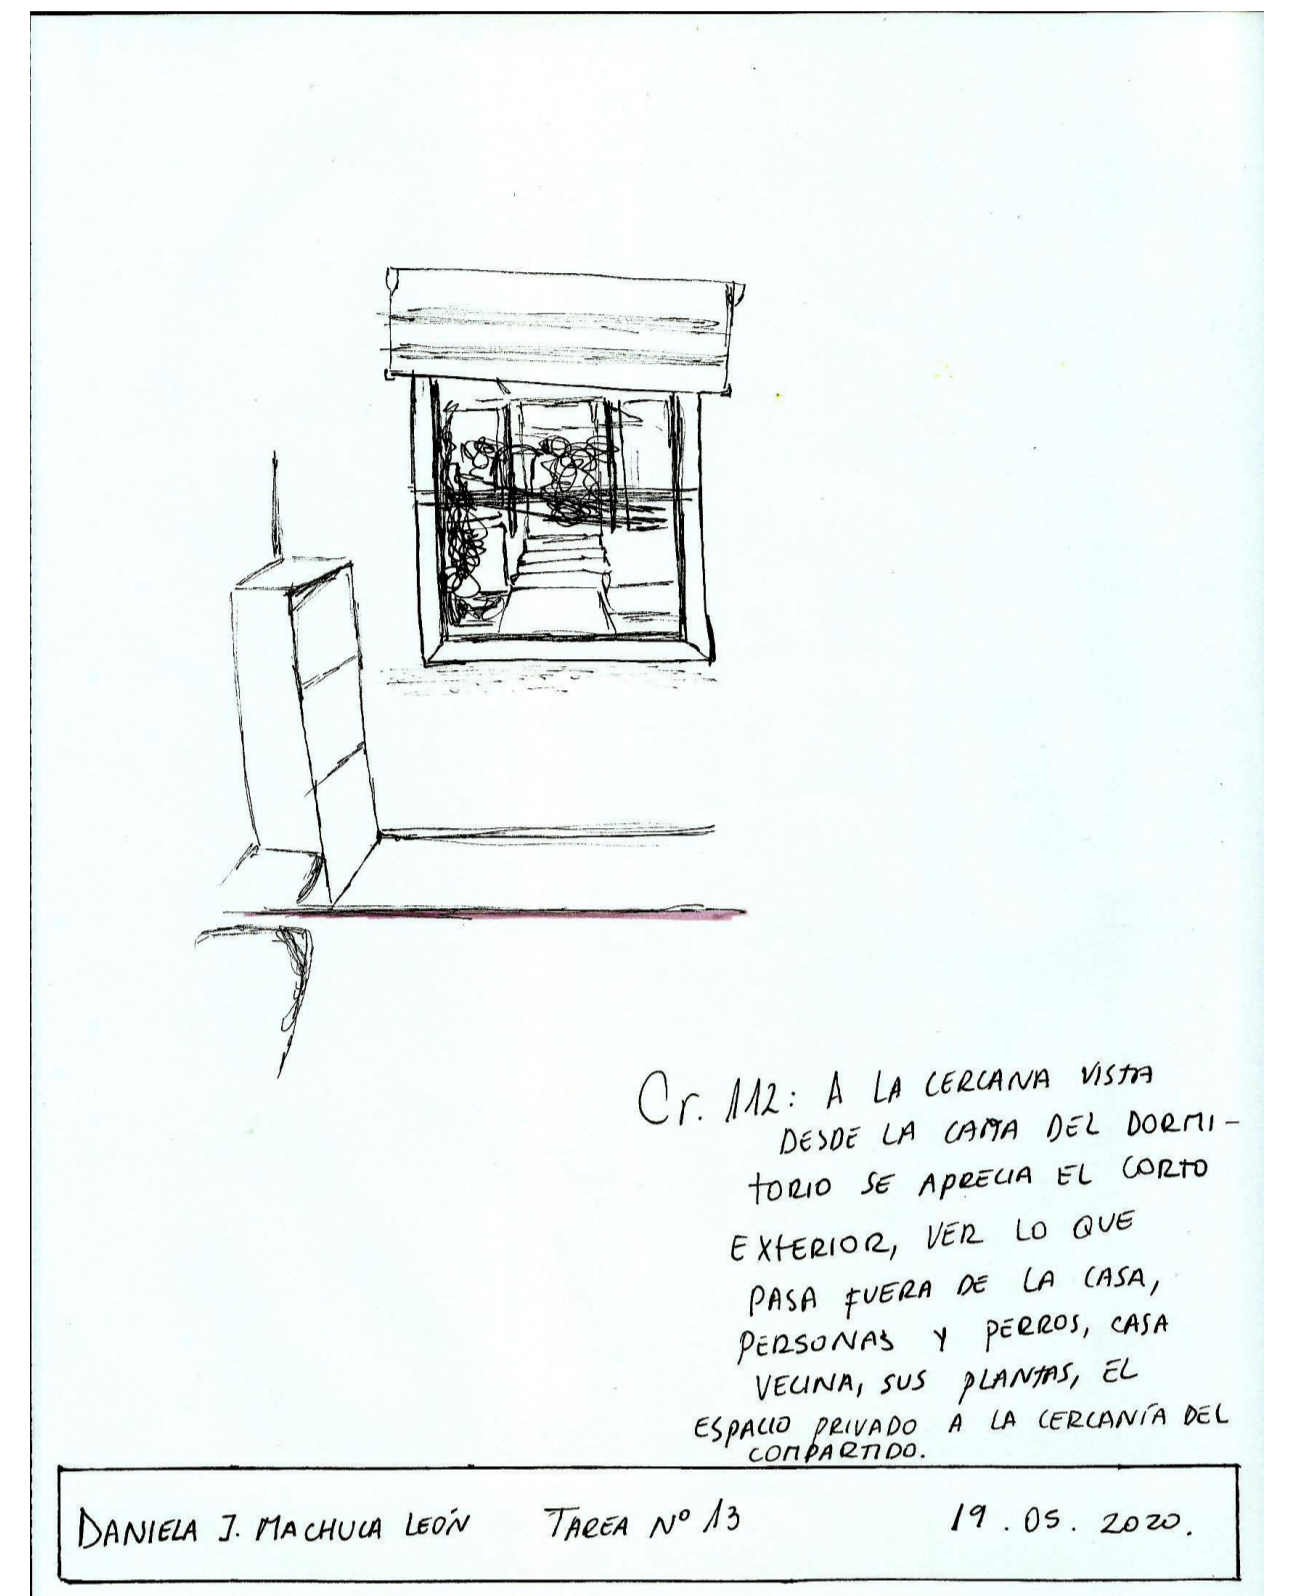 Cr. 112: A LA CERCANA VISTA
DESDE LA CAMA DEL DORMI-
TORIO SE APRECIA EL CORTO
EXTERIOR, VER LO QUE
PASA FUERA DE LA CASA,
PERSONAS Y PERROS, CASA
VECINA, SUS PLANTAS, EL
ESPACIO PRIVADO A LA CERCANÍA DEL
COMPARTIDO.
DANIELA J. MACHUCA LEÓN TAREA Nº 13 19.05.2020.